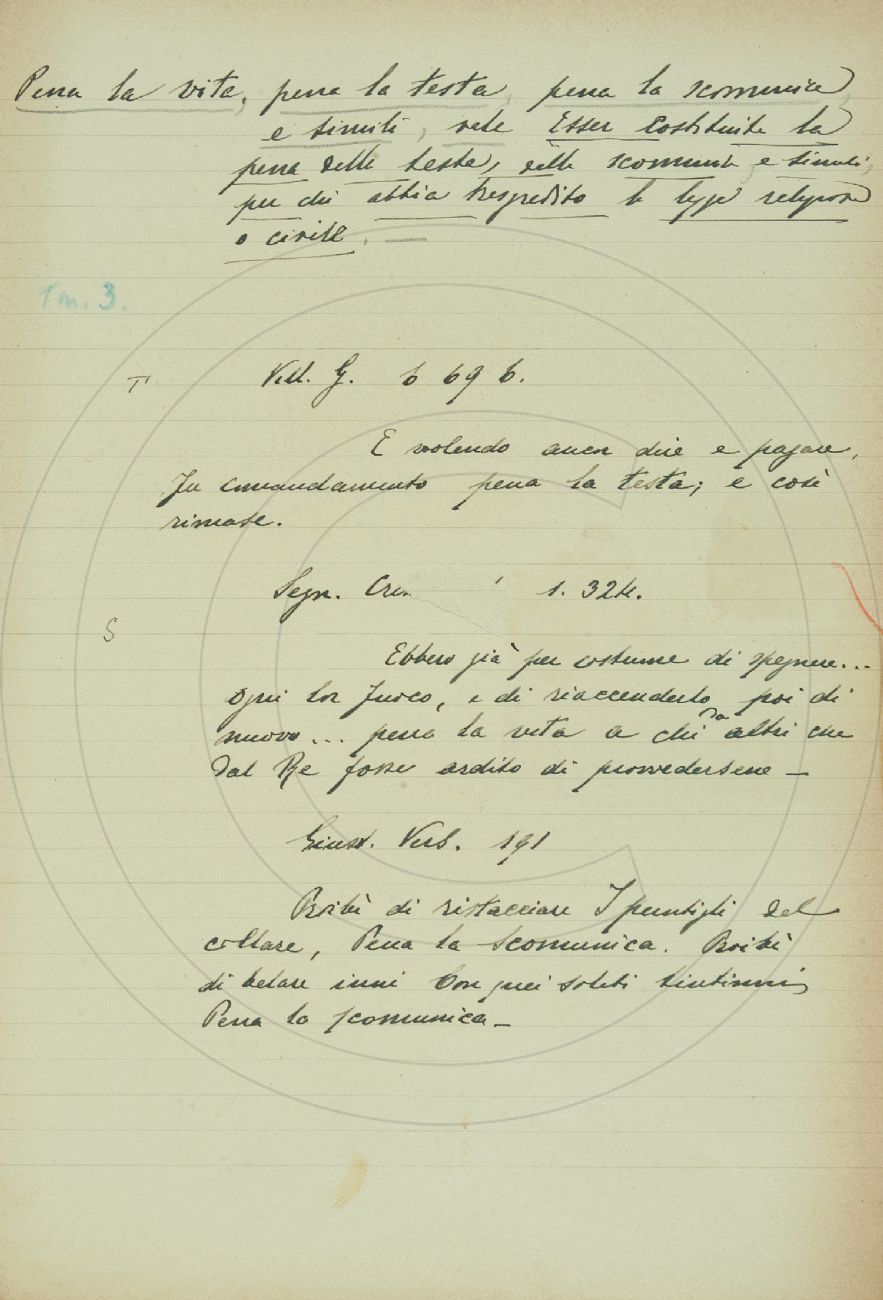 Pena la vita, pena la testa, pena la scomunica,
e simili, vale Esser costituita la
pena della testa, della scomunica e simili,
per chi abbia trasgredito la legge religiosa
o civile. —
Tm. 3.
T Vill. G. 6 69 6.
E volendo ancor dire e pagare,
Fu comandamento pena la testa; e così
rimase.
Segn. Cri. 1. 32
S
Ebbero già per costume di spegnere...
ogni lor fuoco, e di riaccenderlo poi di
nuovo... pena la vita a chi da altri che
dal Re fosse ardito di provvedersene —
Giust. Vers. 191
Proibì di ristacciare I puntigli del
collare, Pena la scomunica. Proibì
di belare inni Con quei soliti tintinni,
Pena la scomunica —